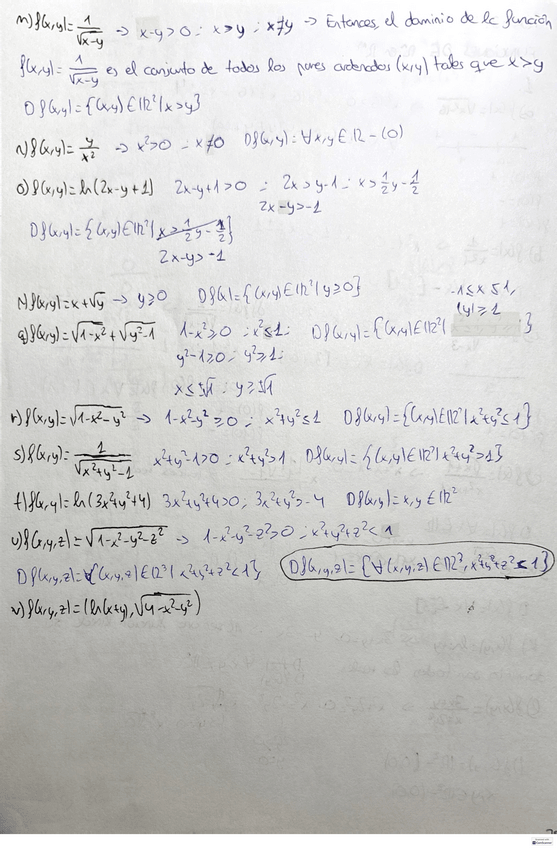 m) f(x,y)= 1/√(x-y) → x-y>0 ; x>y ; x≠y → Entonces, el dominio de la función
f(x,y)= 1/√(x-y) es el conjunto de todos los pares ordenados (x,y) tales que x>y
Df(x,y)={(x,y)∈ℝ²|x>y}
n) f(x,y)= y/x² → x²>0 ; x≠0 Df(x,y)=∀x,y∈ℝ-(0)
o) f(x,y)=ln(2x-y+1) 2x-y+1>0 ; 2x>y-1 ; x>1/2y-1/2
2x-y>-1
Df(x,y)={(x,y)∈ℝ²|x>1/2y-1/2}
2x-y>-1
p) f(x,y)=x+√y → y≥0 Df(x)={(x,y)∈ℝ²|y≥0} -1≤x≤1,
|y|≥1
q) f(x,y)=√(1-x²)+√(y²-1) 1-x²≥0 ; x²≤1; Df(x,y)={(x,y)∈ℝ²| }
y²-1≥0 ; y²≥1;
x≤±√1 ; y≥±√1
r) f(x,y)=√(1-x²-y²) → 1-x²-y²≥0 ; x²+y²≤1 Df(x,y)={(x,y)∈ℝ²|x²+y²≤1}
s) f(x,y)= 1/√(x²+y²-1) x²+y²-1>0 ; x²+y²>1 Df(x,y)={(x,y)∈ℝ²|x²+y²>1}
t) f(x,y)=ln(3x²+y²+4) 3x²+y²+4>0 ; 3x²+y²>-4 Df(x,y)=x,y∈ℝ²
u) f(x,y,z)=√(1-x²-y²-z²) → 1-x²-y²-z²>0 ; x²+y²+z²<1
Df(x,y,z)=∀{(x,y,z)∈ℝ³|x²+y²+z²<1} Df(x,y,z)={∀(x,y,z)∈ℝ³, x²+y²+z²≤1}
v) f(x,y,z)=(ln(x+y),√(4-x²-y²))